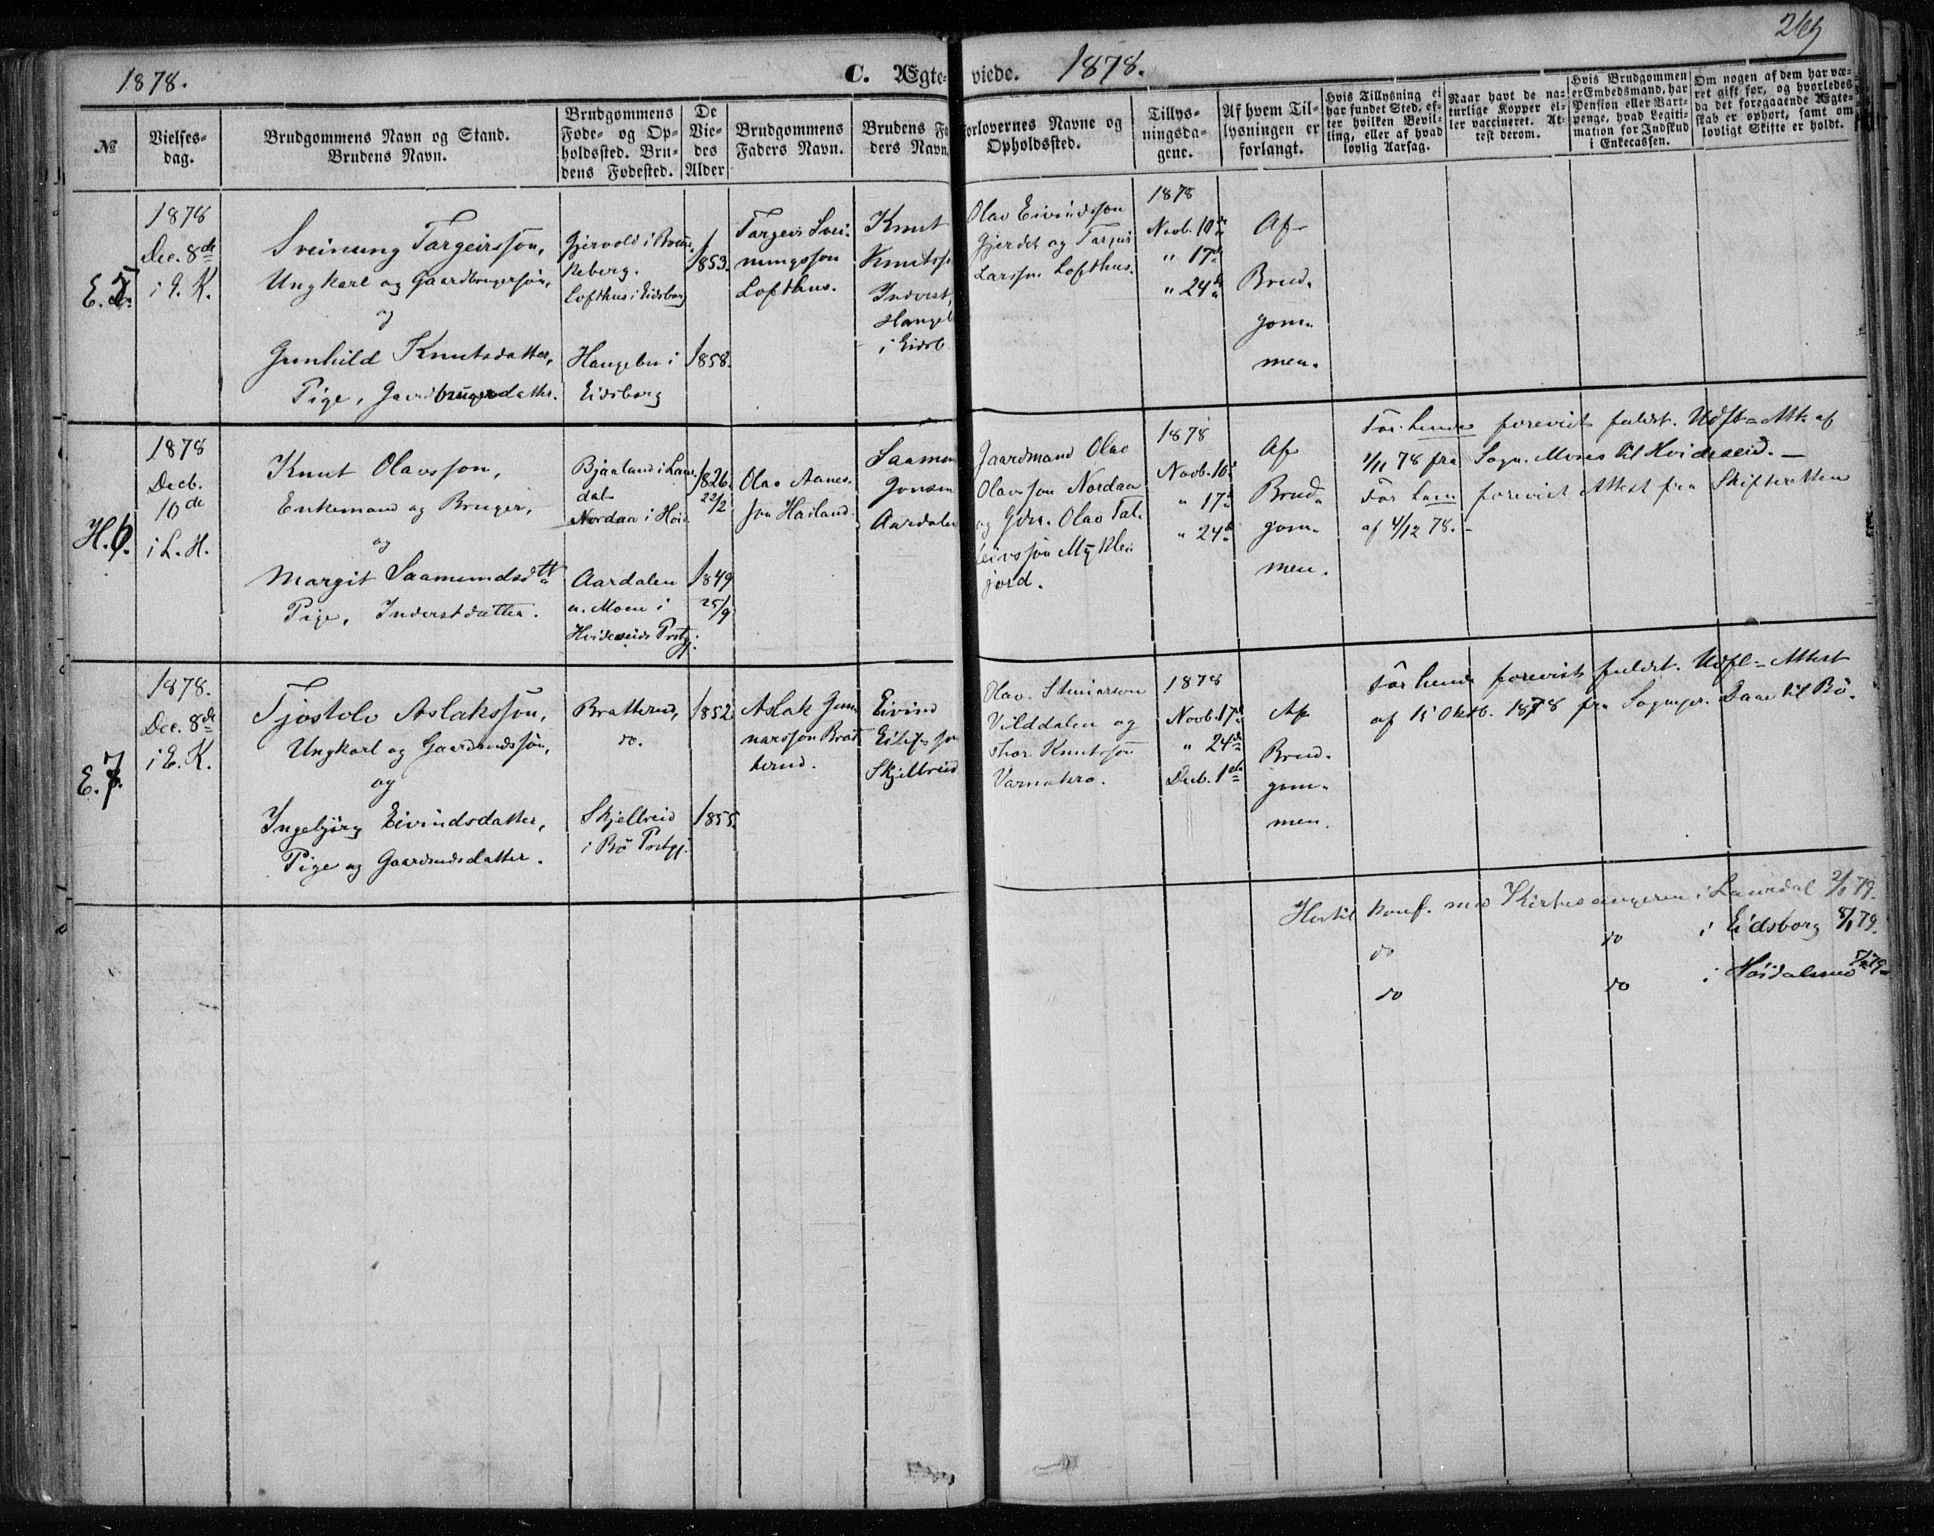 1878.
C. Ægte-
viede.
1878.
269
№
Vielses-
dag.
Brudgommens Navn og Stand.
Brudens Navn.
Brudgommens
Føde- og Op-
holdssted. Bru-
dens Fødested.
De
Vie-
des
Alder
Brudgommens
Faders Navn.
Brudens Fa
ders Navn
Forlovernes Navne og
Opholdssted.
Tillys-
ningsda-
gene.
Af hvem Til-
lysningen er
forlangt.
Hvis Tillysning ei
har fundet Sted, ef-
ter hvilken Bevil-
ling, eller af hvad
lovlig Aarsag.
Naar havt de na-
turlige Kopper el-
ler vaccineret. At-
test derom.
Hvis Brudgommen
er Embedsmand, har
Pension eller Vart-
penge, hvad Legiti-
mation for Indskud
i Enkecassen.
Om nogen af dem har væ-
ret gift før, og hvorledes
da det foregaaende Ægte-
skab er ophørt, samt om
lovligt Skifte er holdt.
E. 5.
1878
Dec. 8de
i E. K.
Sveinung Targeirsson,
Ungkarl og Gaardbrugersøn,
og
Gunhild Knutsdatter,
Pige, Gaardbrugerdatter.
Gjervold i
Lofthus i Eidsborg
Haugebø i
Eidsborg
1853.
1858.
Targeir Svei-
nungsson
Lofthus.
Knut
Knutss
Inderst,
Haugeb
i Eidsb
Olav Eivindsson
Gjerdet og Targeir
Larsson Lofthus.
1878
Novb. 10de
" 17de
" 24de
Af
Brud-
gom-
men.
H. 6.
1878
Decb.
10de
i L. H.
Knut Olavsson,
Enkemand og Bruger,
og
Margit Saamundsdtt
Pige, Inderstdatter.
Bjaaland i Laur-
dal
Nordaa i Høid
Aardalen
u. Moen i
Hvideseids Prstgj.
1826.
22/2
1849
25/9
Olav Aanes-
son Hailand.
Saamun
Jonsen
Aardalen
Gaardmand Olav
Olavsson Nordaa
og Gdm. Olav Tal-
leivsson Myklei
jord.
1878
Novb. 10de
" 17de
" 24de
Af
Brud-
gom-
men.
For hende forevist fuldst. Udfl-Att. af
1/11 78 fra Sogn. Moses til Hvideseid. —
For ham forevist Attest fra Skifteretten
af 4/12 78. -
E. 7.
1878.
Dec. 8de
i E. K.
Tjostolv Aslaksson,
Ungkarl og Gaardmdssøn,
og
Ingebjørg Eivindsdatter,
Pige og Gaardmdsdatter.
Bratterud,
do.
Skjelbreid
i Bø Prstgj.
1852
1855.
Aslak Gun-
narsson Brat
terud.
Eivind
Eilifsson
Skjelbreid
Olav Steinarson
Vilddalen og
Thor Knutsson
1878
Novb. 17de
" 24de
Decb. 1ste
Af
Brud-
gom-
men.
For hende forevist fuldst. Udfl-Attest
af 15 Oktb. 1878 fra Sognepr. Daae til Bø.
Hertil konf. med Kirkesangeren i Laurdal 2/1 79.
do do i Eidsborg 8/1 79.
do do i Høidalsmo 79